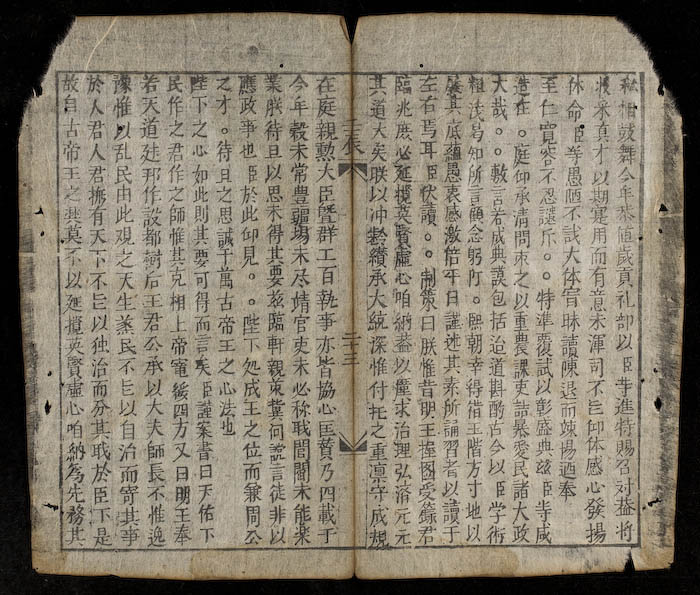 私相鼓舞今年恭値歲貢礼部以臣等進特賜召对盖将
求真才以期寔用而有意未渾司不足仰体感心發揚
休命臣等愚陋不試大体官昧讀陳退而竦惕酒奉
至仁寬容不忍譴斥。。特準覆試以彰盛典玆臣等咸
造在。庭仰承清問策之以重農課吏詰暴愛民諸大政
大哉。。敷言若成典謨包括治道斟酌古今以臣学術
粗浅曷知所言願念躬际。熙朝幸得借玉階方寸地以
展其底蘊愚衷感激倍平日謹述其素所誦習者以讀于
左右焉耳臣伏讀。。制策曰朕惟昔明王握图受籙君
臨兆庶必延攬英賢虛心咱納盖以釐求治理弘濟元元
其道大矣朕以冲齡纘承大統深惟付托之重凛守成規
壬辰
二十三
在庭親勲大臣曁群工百執事亦皆協心匡賛乃四載于
今年穀未常豊疆場未尽靖官吏未必称职閭閻未能楽
業朕待旦以思未得其要玆臨軒親策冀问讜言徒非以
應政事也臣於此仰見。。陛下処成王之位而兼周公
之才。待旦之思誠于萬古帝王之心法也
陛下之心如此則其要可得而言矣臣謹案書曰天佑下
民作之君作之師惟其克相上帝寵綏四方又曰明王奉
若天道廸邦作設都樹后王君公承以大夫師長不惟逸
豫惟以乱民由此观之天生蒸民不足以自治而寄其事
於人君人君撫有天下不足以独治而分其职於臣下是
故自古帝王之典莫不以延攬英賢虛心咱納為先務其